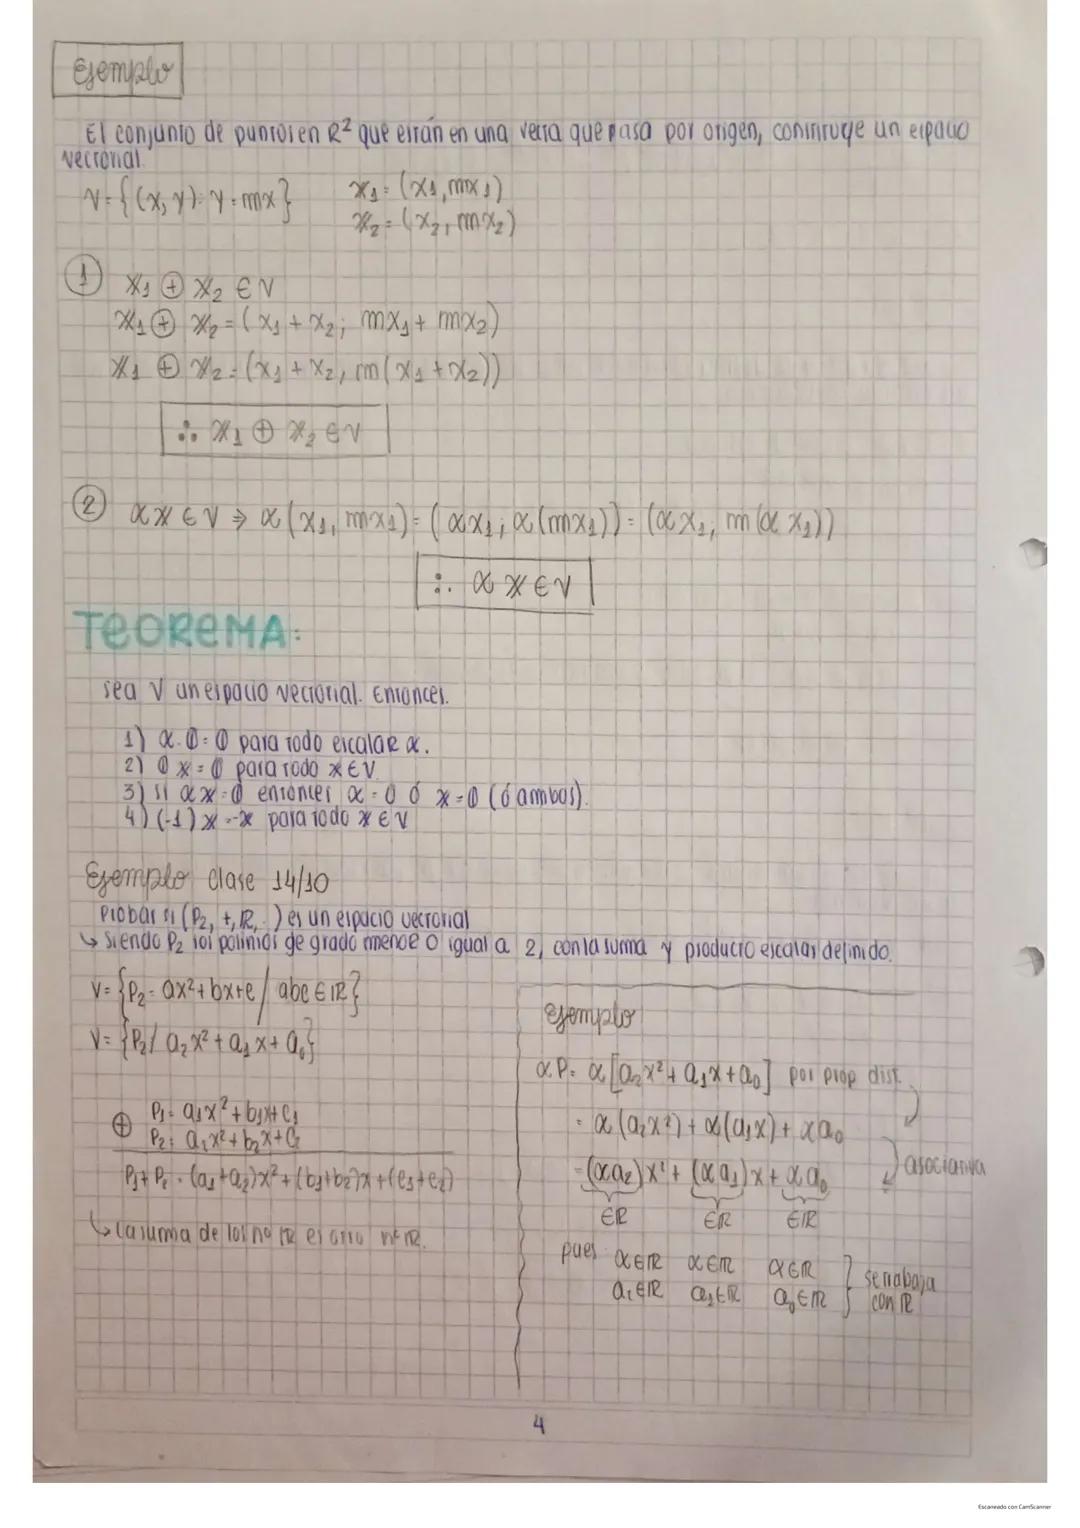 Ejemplo
El conjunto de puntos en R² que están en una recta que pasa por origen, constituye un espacio
vectorial.
V = {(x, y): y = mx}
x₁ = (x₁, mx₁)
x₂ = (x₂, mx₂)
① x₁ ⊕ x₂ ∈ V
x₁ ⊕ x₂ = (x₁ + x₂; mx₁ + mx₂)
x₁ ⊕ x₂ = (x₁ + x₂, m(x₁ + x₂))
∴ x₁ ⊕ x₂ ∈ V
② αx ∈ V ⇒ α(x₁, mx₁) = (αx₁; α(mx₁)) = (αx₁, m(αx₁))
∴ αx ∈ V
TEOREMA:
sea V un espacio vectorial. Entonces.
1) α.0 = 0 para todo escalar α.
2) 0x = 0 para todo x ∈ V
3) si αx = 0 entonces α = 0 ó x = 0 (ó ambos).
4) (-1)x = -x para todo x ∈ V
Ejemplo clase 14/10
Probar si (P₂, +, R, ·) es un espacio vectorial
↳ Siendo P₂ los polinios de grado menoe o igual a 2, con la suma y producto escalar definido.
V = {P₂ = ax² + bx + c / abc ∈ R}
V = {P₂ / a₂x² + a₁x + a₀}
⊕ P₁ = a₁x² + b₁x + c₁
P₂ = a₂x² + b₂x + c₂
P₁ + P₂ = (a₁ + a₂)x² + (b₁ + b₂)x + (c₁ + c₂)
↳ La suma de los no R es otro nº R.
Ejemplo
αP = α[a₂x² + a₁x + a₀] por prop dist.
= α(a₂x²) + α(a₁x) + αa₀
= (αa₂)x² + (αa₁)x + αa₀ asociativa
∈R ∈R ∈R
pues α∈R α∈R α∈R
a₂∈R a₁∈R a₀∈R } se trabaja
con R
4
Escaneado con CamScanner